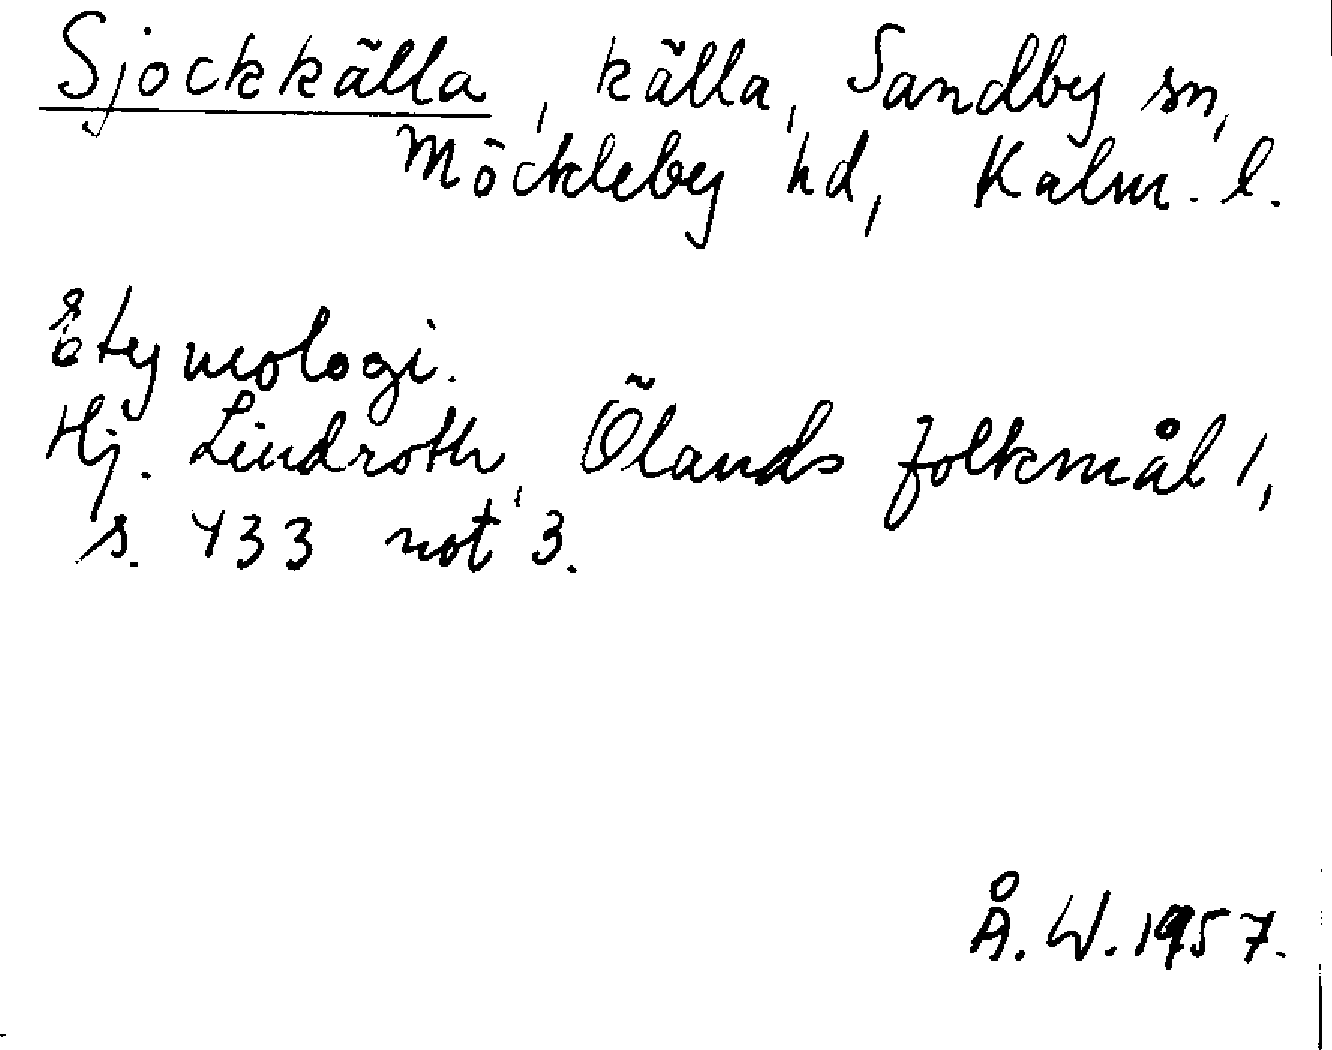 Sjockkälla, källa, Sandby sn,
Möckleby hd, Kalm. l.
Etymologi.
Hj. Lindroth, Ölands folkmål 1,
s. 433 not 3.
Å. W. 1957.